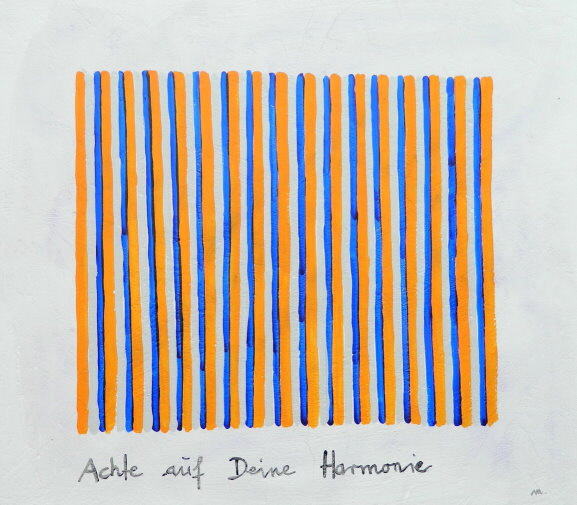 Achte auf Deine Harmonie
m.